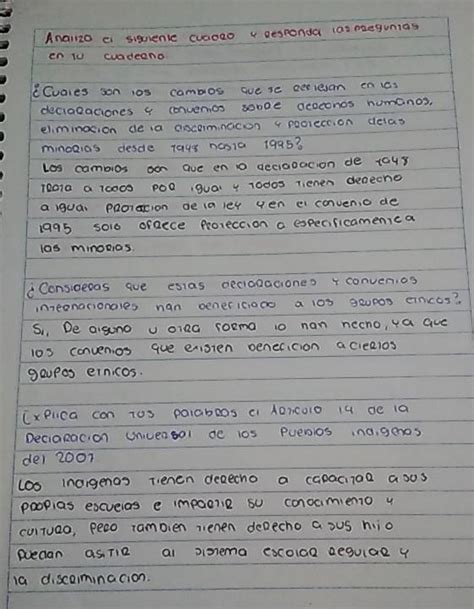 Analiza el siguiente cuadro y responda las preguntas
en tu cuaderno.
¿Cuales son los cambios que se reflejan en las
declaraciones y convenios sobre derechos humanos,
eliminacion de la discriminacion y proteccion delas
minorias desde 1948 hasta 1995?
Los cambios son que en la declaracion de 1948
trata a todos por igual y todos tienen derecho
a igual proteccion de la ley y en el convenio de
1995 solo ofrece proteccion a especificamente a
las minorias.
¿Consideras que estas declaraciones y convenios
internacionales han beneficiado a los grupos etnicos?
Si, De alguno u otra forma lo han hecho, ya que
los convenios que existen benefician a ciertos
grupos etnicos.
Explica con tus palabras el Articulo 14 de la
Declaracion universal de los Pueblos indigenas
del 2007
Los indigenas tienen derecho a capacitar a sus
propias escuelas e impartir su conocimiento y
cultura, pero tambien tienen derecho a sus hijo
puedan asitir al sistema escolar regular y
la discriminacion.